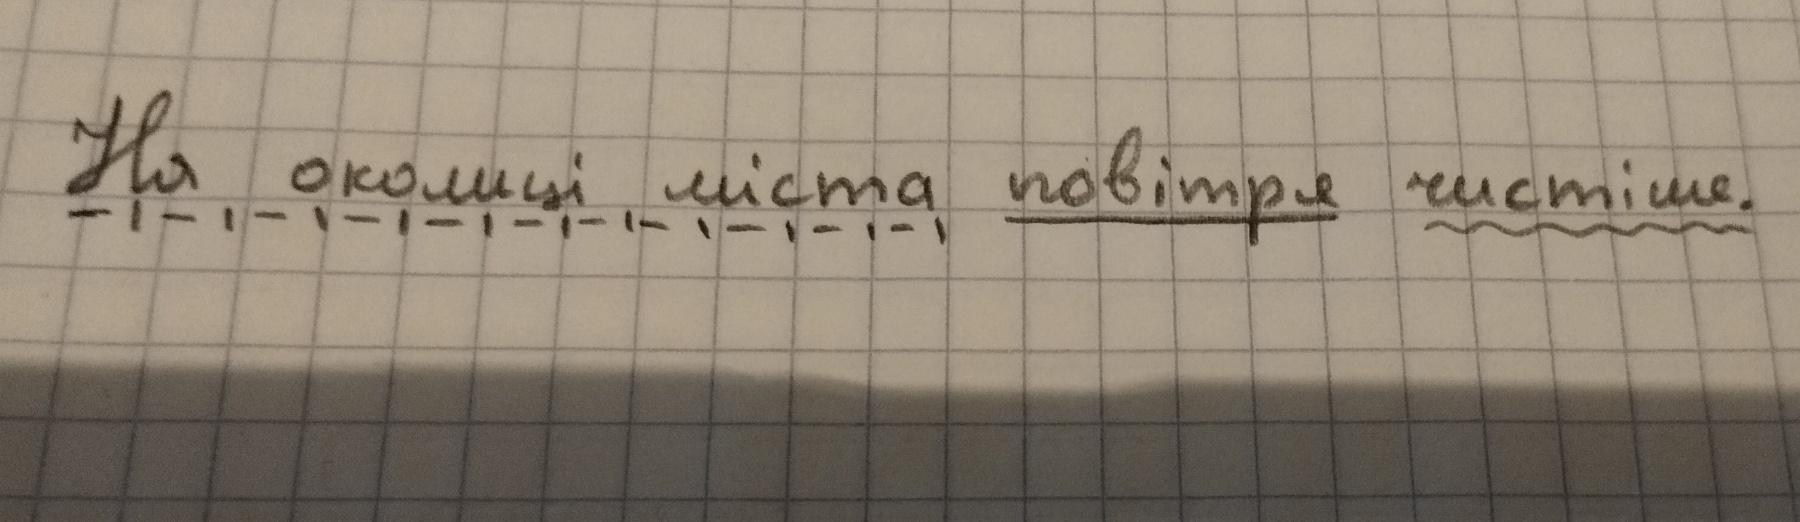 На околиці міста повітря чистіше.